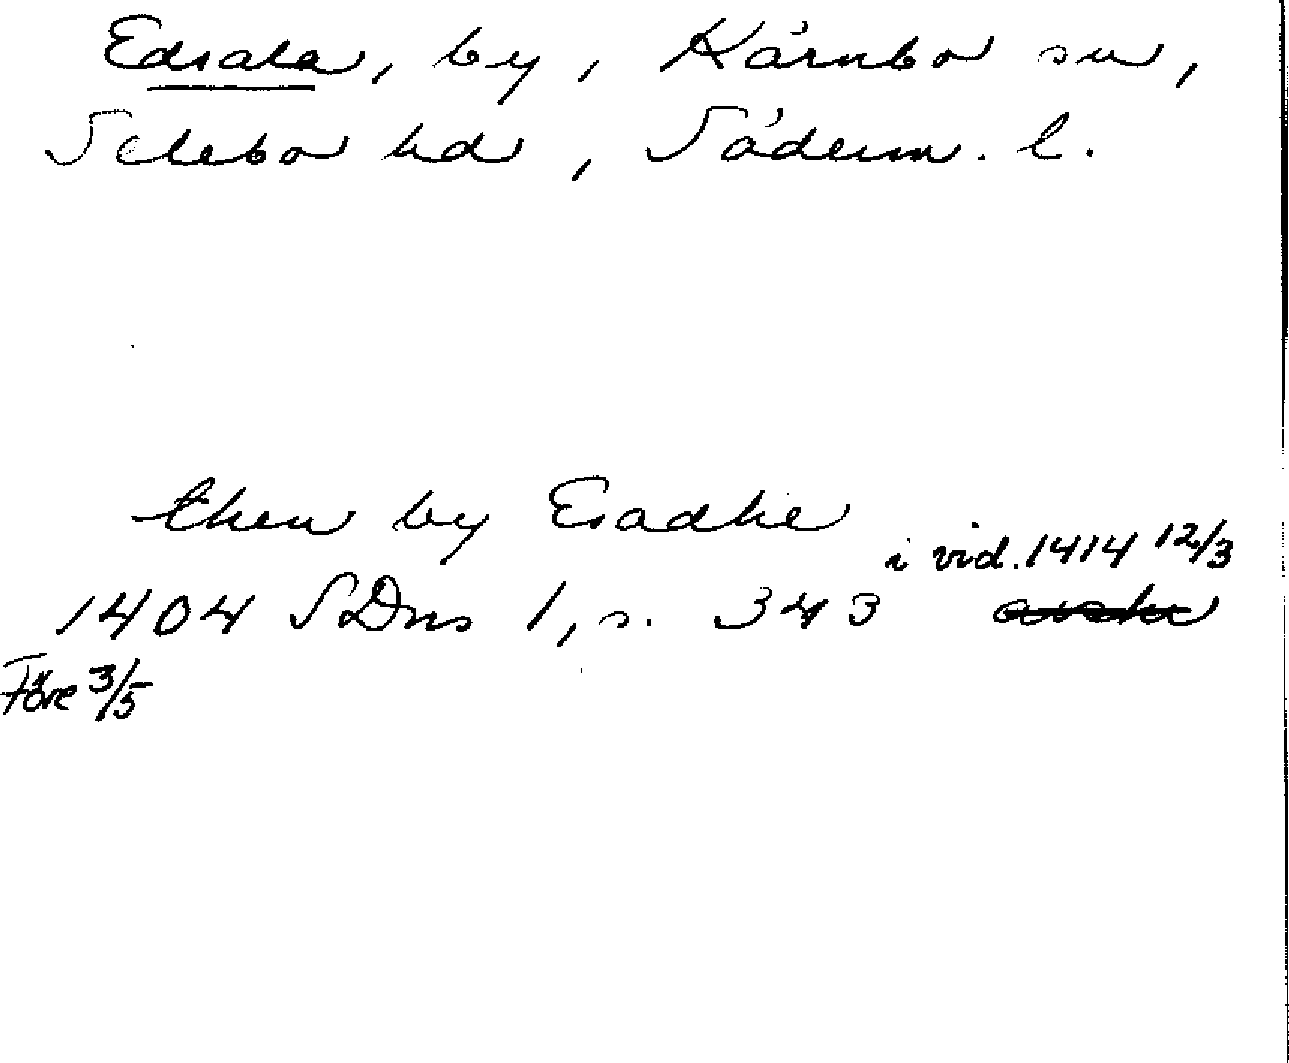 Edsala, by, Kärnbo sn,
Selebo hd, Söderm. l.
then by Esadhe
i vid. 1414 12/3
1404 SDns 1, s. 343
Före 3/5